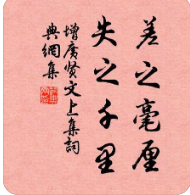 差之毫厘
失之千里
增广贤文上集詞
典網集